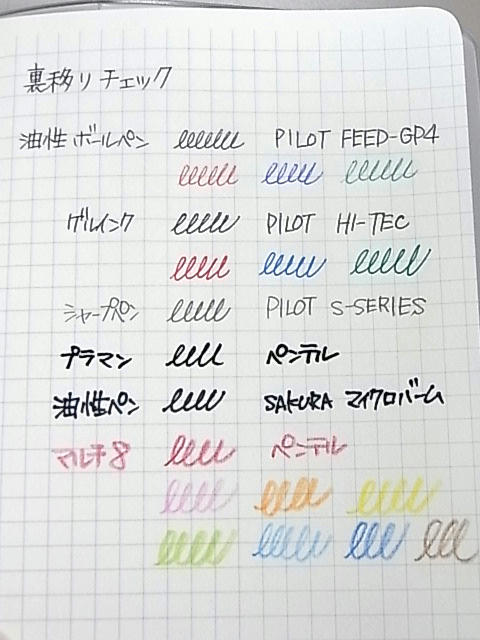 裏移りチェック
油性ボールペン PILOT FEED-GP4
ゲルインク PILOT HI-TEC
シャープペン PILOT S-SERIES
プラマン ペンテル
油性ペン SAKURA マイクロパーム
マルチ8 ペンテル